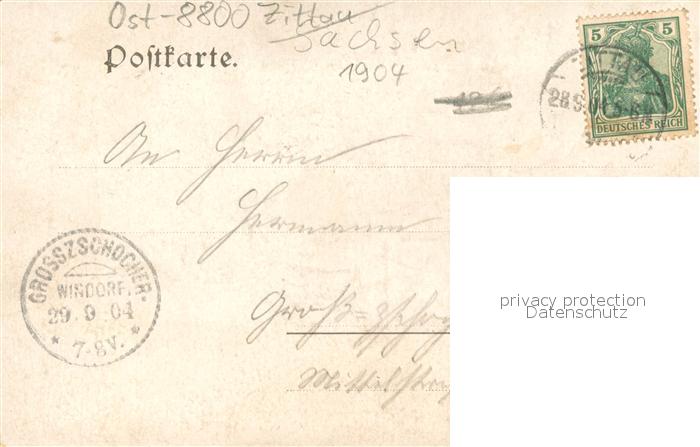 Ost-8800 Zittau
Sachsen
1904
Postkarte.
5 5
DEUTSCHES REICH
28.9.04
An Herrn
Hermann
Groß-Zschoch
Mittelstraß
GROSSZSCHOCHER-
WINDORF.
29.9 04
* 7-8V. *
privacy protection
Datenschutz